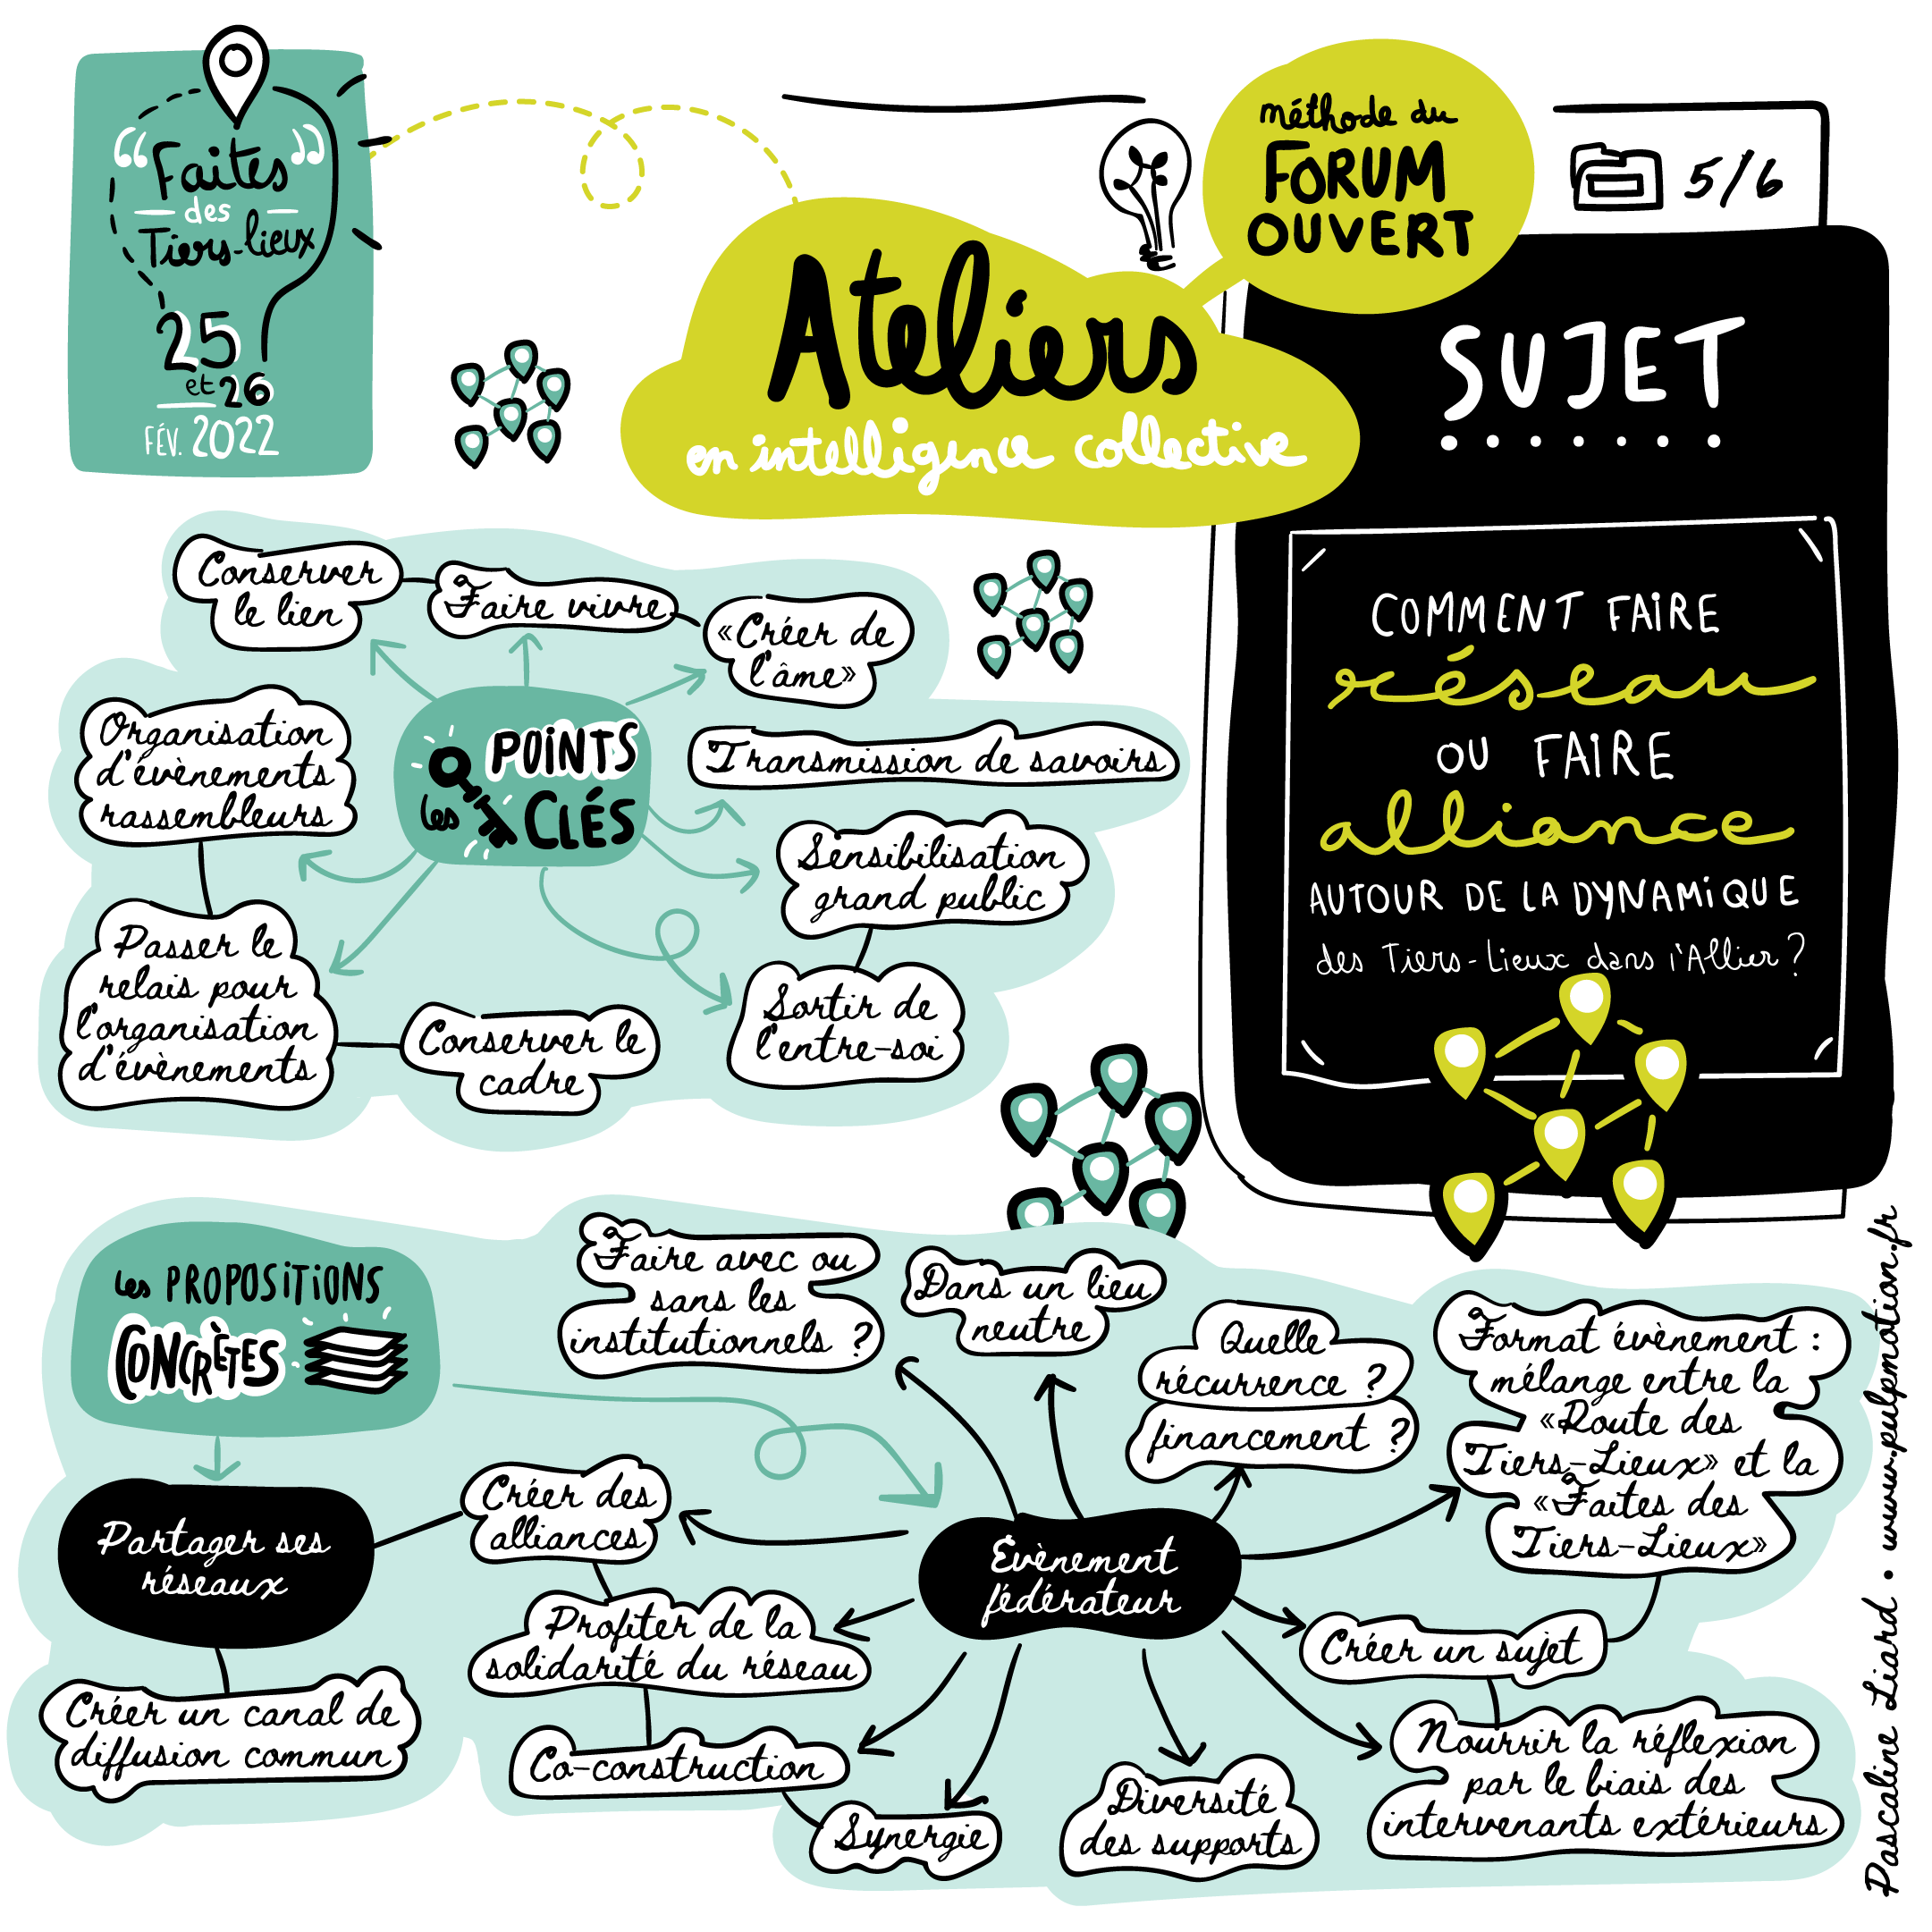 “Faites”
des
Tiers-lieux
25
et 26
FÉV. 2022
Ateliers
en intelligence collective
méthode du
FORUM
OUVERT
5/6
SUJET
COMMENT FAIRE
réseau
OU FAIRE
alliance
AUTOUR DE LA DYNAMIQUE
des Tiers-Lieux dans l'Allier ?
les POINTS
CLÉS
Conserver
le lien
Faire vivre
«Créer de
l'âme»
Transmission de savoirs
Sensibilisation
grand public
Sortir de
l'entre-soi
Organisation
d'évènements
rassembleurs
Passer le
relais pour
l'organisation
d'évènements
Conserver le
cadre
les PROPOSITIONS
CONCRÈTES
Partager ses
réseaux
Créer un canal de
diffusion commun
Créer des
alliances
Profiter de la
solidarité du réseau
Co-construction
Synergie
Évènement
fédérateur
Faire avec ou
sans les
institutionnels ?
Dans un lieu
neutre
Quelle
récurrence ?
financement ?
Format évènement :
mélange entre la
«Route des
Tiers-Lieux» et la
«Faites des
Tiers-Lieux»
Créer un sujet
Nourrir la réflexion
par le biais des
intervenants extérieurs
Diversité
des supports
Pascaline Liard • www.pulpmotion.fr